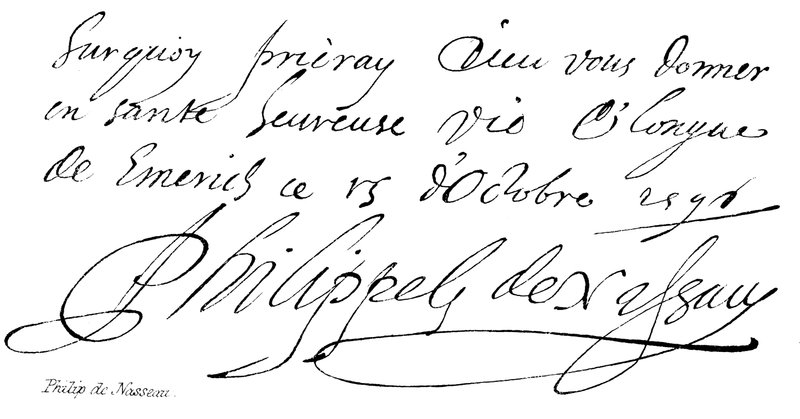 Surquoy prieray Dieu vous donner
en santé heureuse vie & longue
de Emerich ce 15 d'Octobre
Philippes de Nassau
Philip de Nasseau.